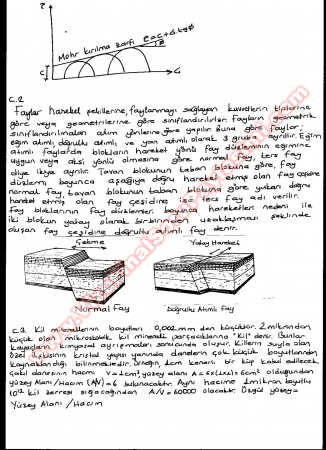 τ
Mohr kırılma zarfı τ=c+σ tgφ
C
σ
C.2
Faylar hareket şekillerine, faylanmayı sağlayan kuvvetlerin tiplerine
göre veya geometrilerine göre sınıflandırılırlar. Fayların geometrik
sınıflandırılmaları atım yönlerine göre yapılır. Buna göre faylar;
eğim atımlı, doğrultu atımlı ve yan atımlı olarak 3 gruba ayrılır. Eğim
atımlı faylarda blokların hareket yönü fay düzleminin eğimine
uygun veya aksi yönlü olmasına göre normal fay, ters fay
diye ikiye ayrılır. Tavan blokunun taban blokuna göre, fay
düzlemi boyunca aşağıya doğru hareket etmiş olan fay çeşidine
normal fay, tavan blokunun taban blokuna göre yukarı doğru
hareket etmiş olan fay çeşidine ise ters fay adı verilir.
Fay bloklarının fay düzlemleri boyunca hareketleri nedeni ile
iki blokun yatay olarak birbirinden uzaklaşması şeklinde
oluşan fay çeşidine doğrultu atımlı fay denir.
Çekme
Yatay Hareket
Normal Fay
Doğrultu Atımlı Fay
C.3. Kil minerallerinin boyutları 0,002 mm den küçüktür. 2 mikrondan
küçük olan mikroskobik kil minerali parçacıklarına "Kil" denir. Bunlar
kayaçların kimyasal ayrışmaları sonucunda oluşur. Killerin suyla olan
özel ilişkisinin kristal yapısı yanında danelerin çok küçük boyutlarından
kaynaklandığı bilinmektedir. Örneğin, 1 cm kenarlı bir küp kabul edilecek
çakıl danesinin hacmi V=1cm³, yüzey alanı A=6x(1x1)=6cm² olduğundan
yüzey Alanı / Hacim (A/V)=6 bulunacaktır. Aynı hacime 1 mikron boyutlu
10¹² kil zerresi sığacağından A/V=60000 olacaktır. Özgül yüzey=
Yüzey Alanı / Hacim